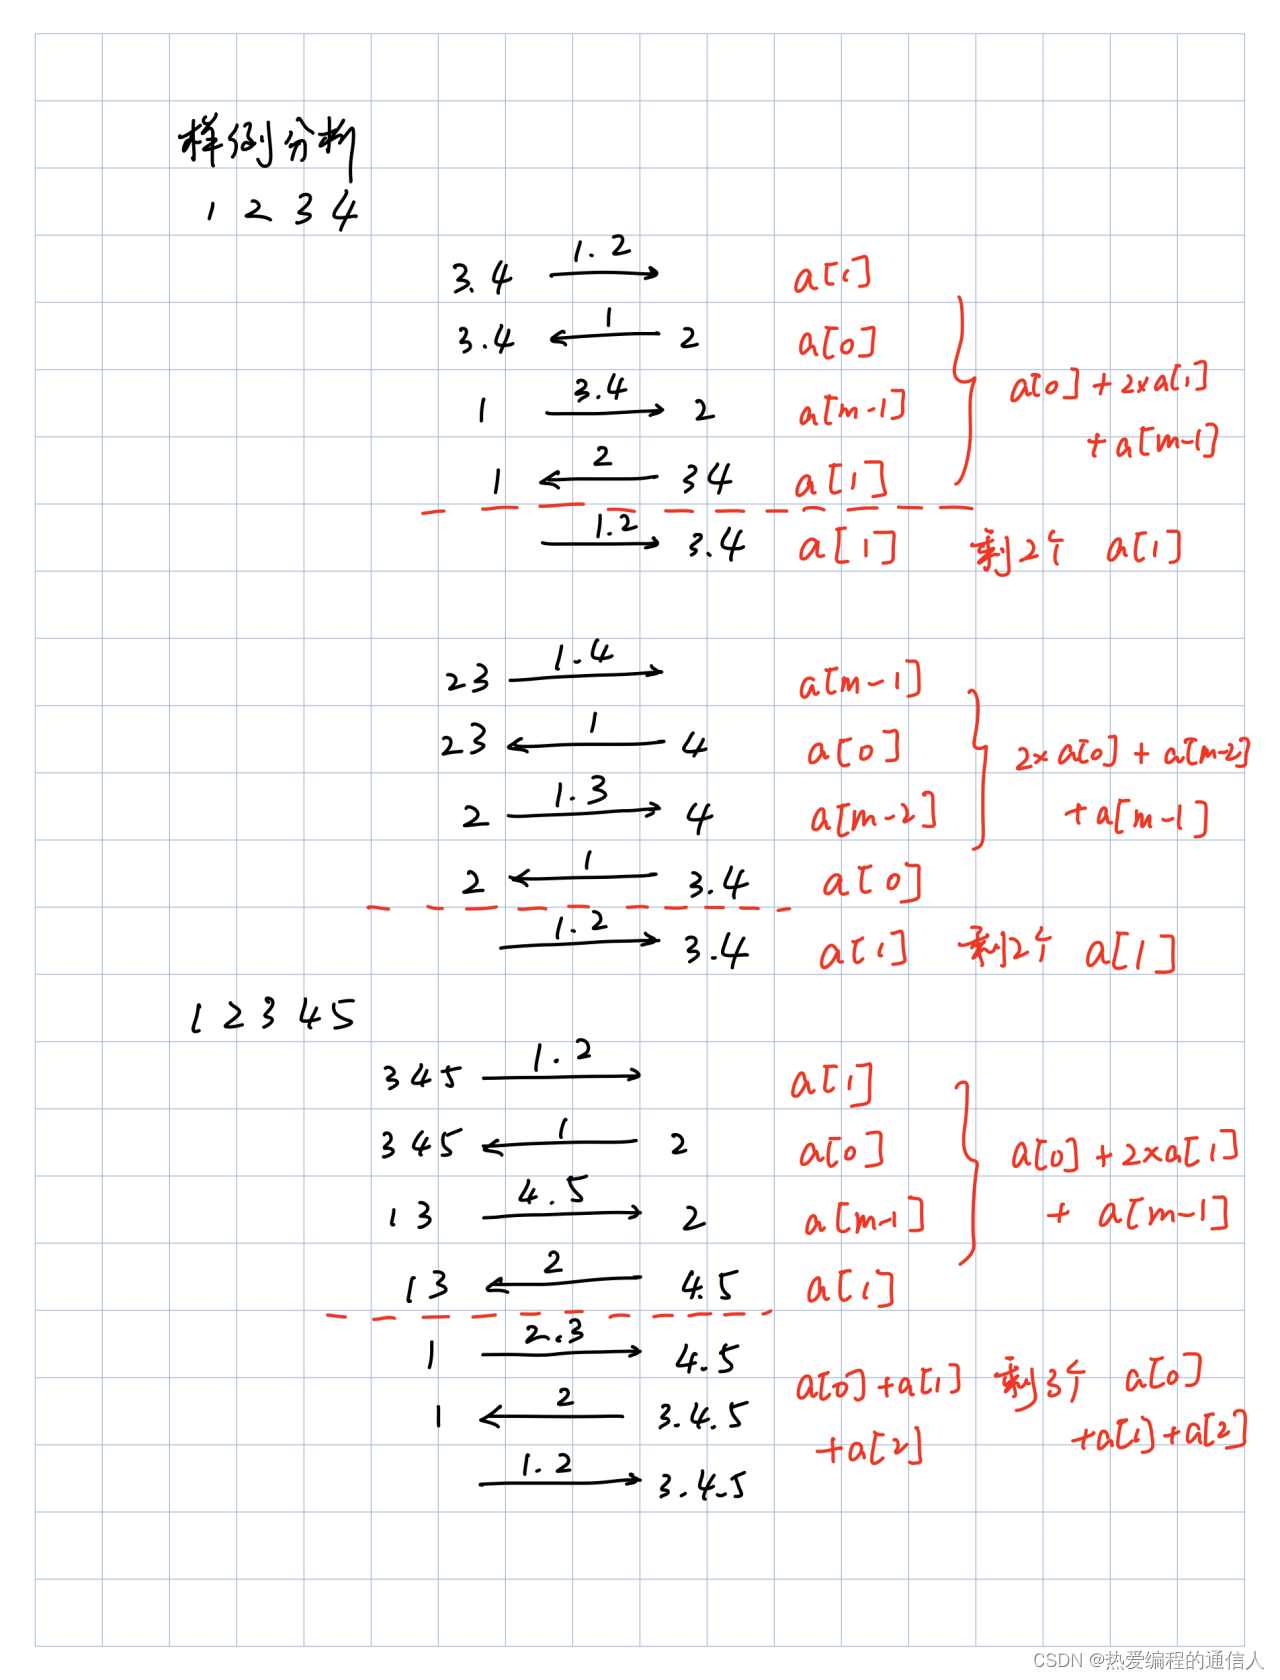 样例分析
1 2 3 4
3.4 1.2 a[1]
3.4 1 2 a[0]
1 3.4 2 a[m-1]
1 2 34 a[1]
a[0]+2×a[1]
+a[m-1]
1.2 3.4 a[1] 剩2个 a[1]
23 1.4 a[m-1]
23 1 4 a[0]
2 1.3 4 a[m-2]
2 1 3.4 a[0]
2×a[0]+a[m-2]
+a[m-1]
1.2 3.4 a[1] 剩2个 a[1]
1 2 3 4 5
345 1.2 a[1]
345 1 2 a[0]
13 4.5 2 a[m-1]
13 2 4.5 a[1]
a[0]+2×a[1]
+ a[m-1]
1 2.3 4.5
1 2 3.4.5
1.2 3.4.5
a[0]+a[1]
+a[2]
剩3个 a[0]
+a[1]+a[2]
CSDN @热爱编程的通信人